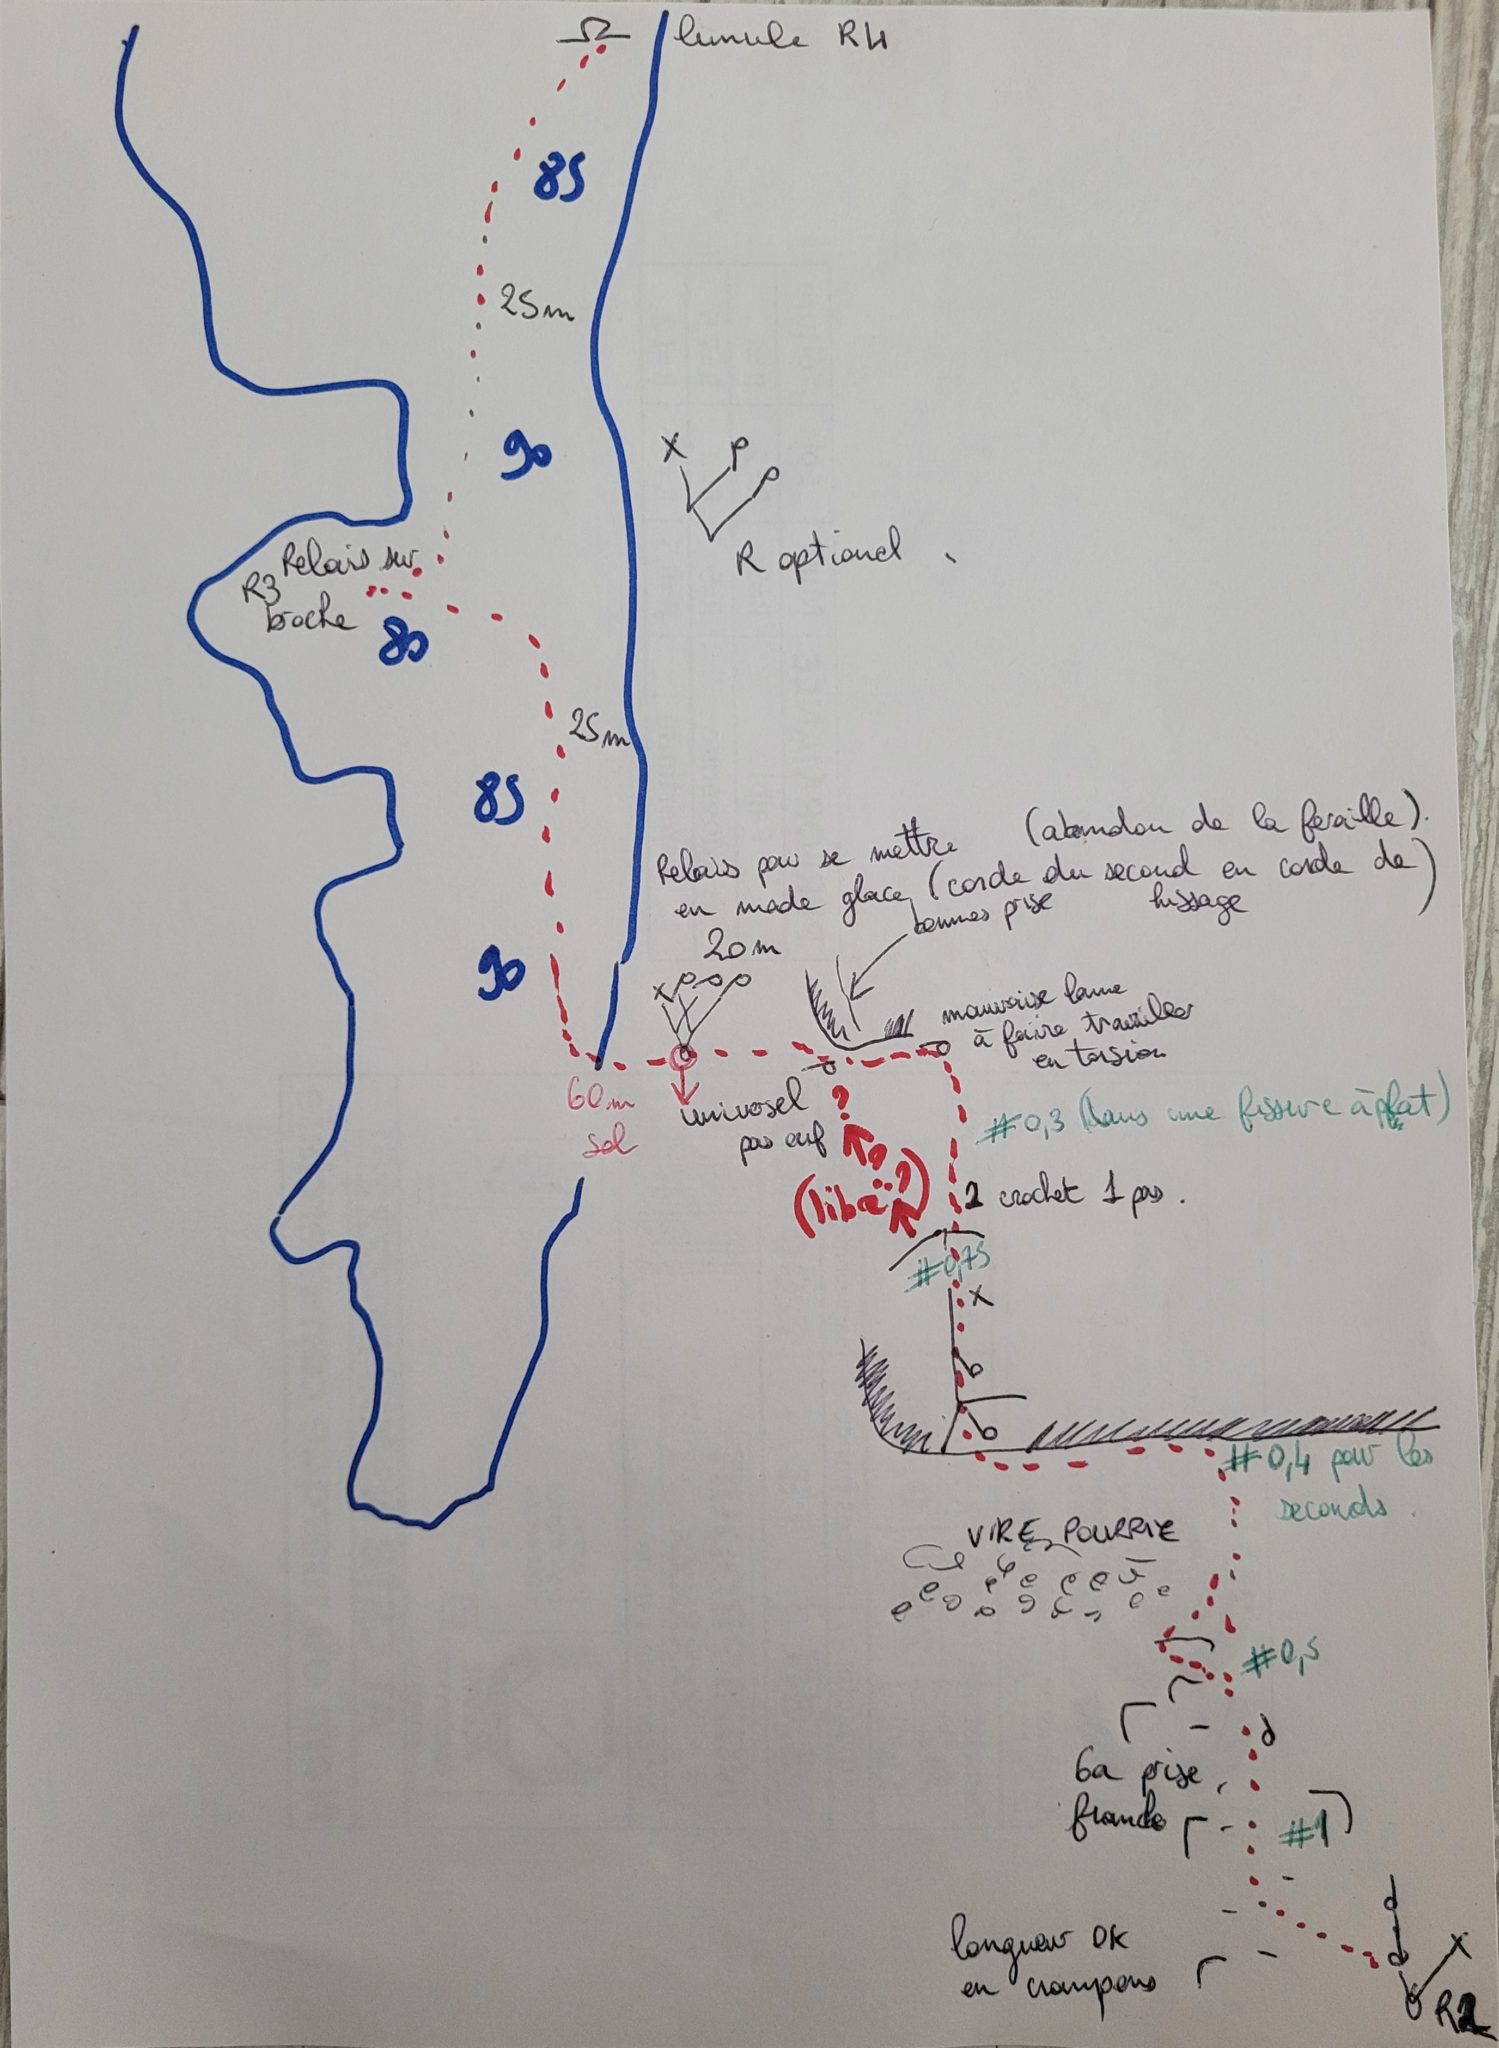 lunule R4
85
25m
90
R optionel
Relais sur
R3
broche
80
25m
85
(abandon de la feraille).
Relais pour se mettre
en mode glace (corde du second en corde de
hissage)
bonnes prise
20m
90
mauvaise lame
à faire travailler
en torsion
60m
sol
universel
pas euf
?
#0,3 (dans une fissure à plat)
(libre ??)
1 crochet 1 pas.
#0,75
x
#0,4 pour les
seconds.
VIRE POURRIE
#0,5
6a prise
franche
#1
longueur OK
en crampons
x
R2